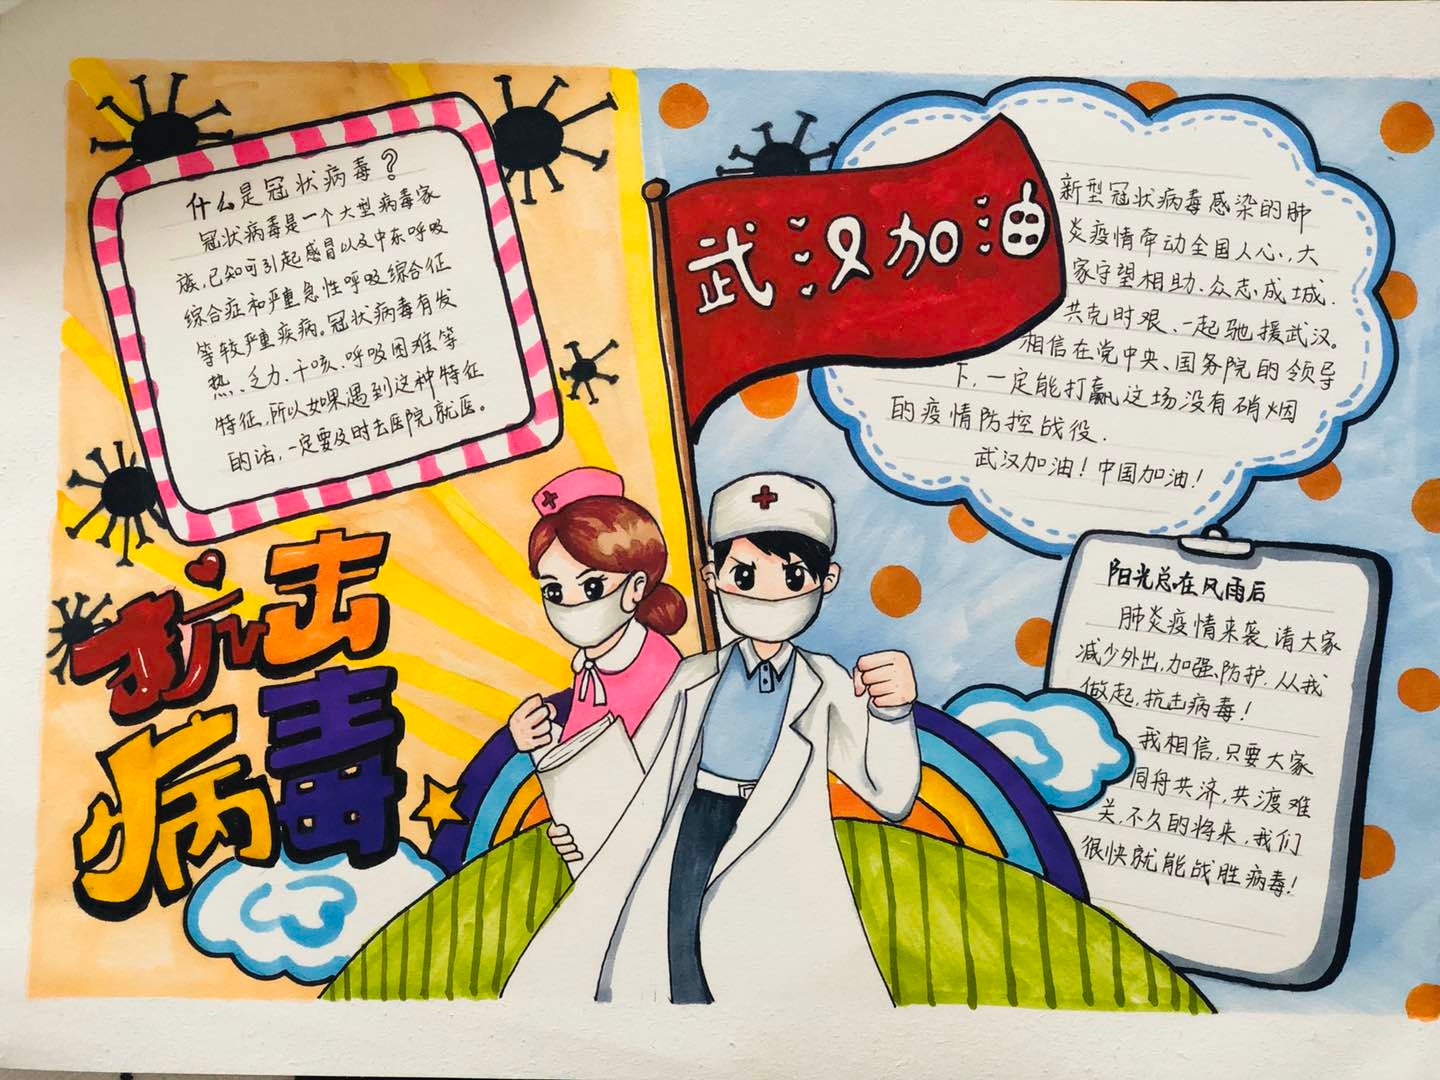 什么是冠状病毒？
冠状病毒是一个大型病毒家
族，已知可引起感冒以及中东呼吸
综合症和严重急性呼吸综合征
等较严重疾病。冠状病毒有发
热、乏力、干咳、呼吸困难等
特征，所以如果遇到这种特征
的话，一定要及时去医院就医。
抗击
病毒
武汉加油
新型冠状病毒感染的肺
炎疫情牵动全国人心，大
家守望相助、众志成城．
共克时艰、一起驰援武汉。
相信在党中央、国务院的领导
下，一定能打赢这场没有硝烟
的疫情防控战役．
武汉加油！中国加油！
阳光总在风雨后
肺炎疫情来袭，请大家
减少外出，加强防护．从我
做起，抗击病毒！
我相信，只要大家
同舟共济，共渡难
关，不久的将来，我们
很快就能战胜病毒！